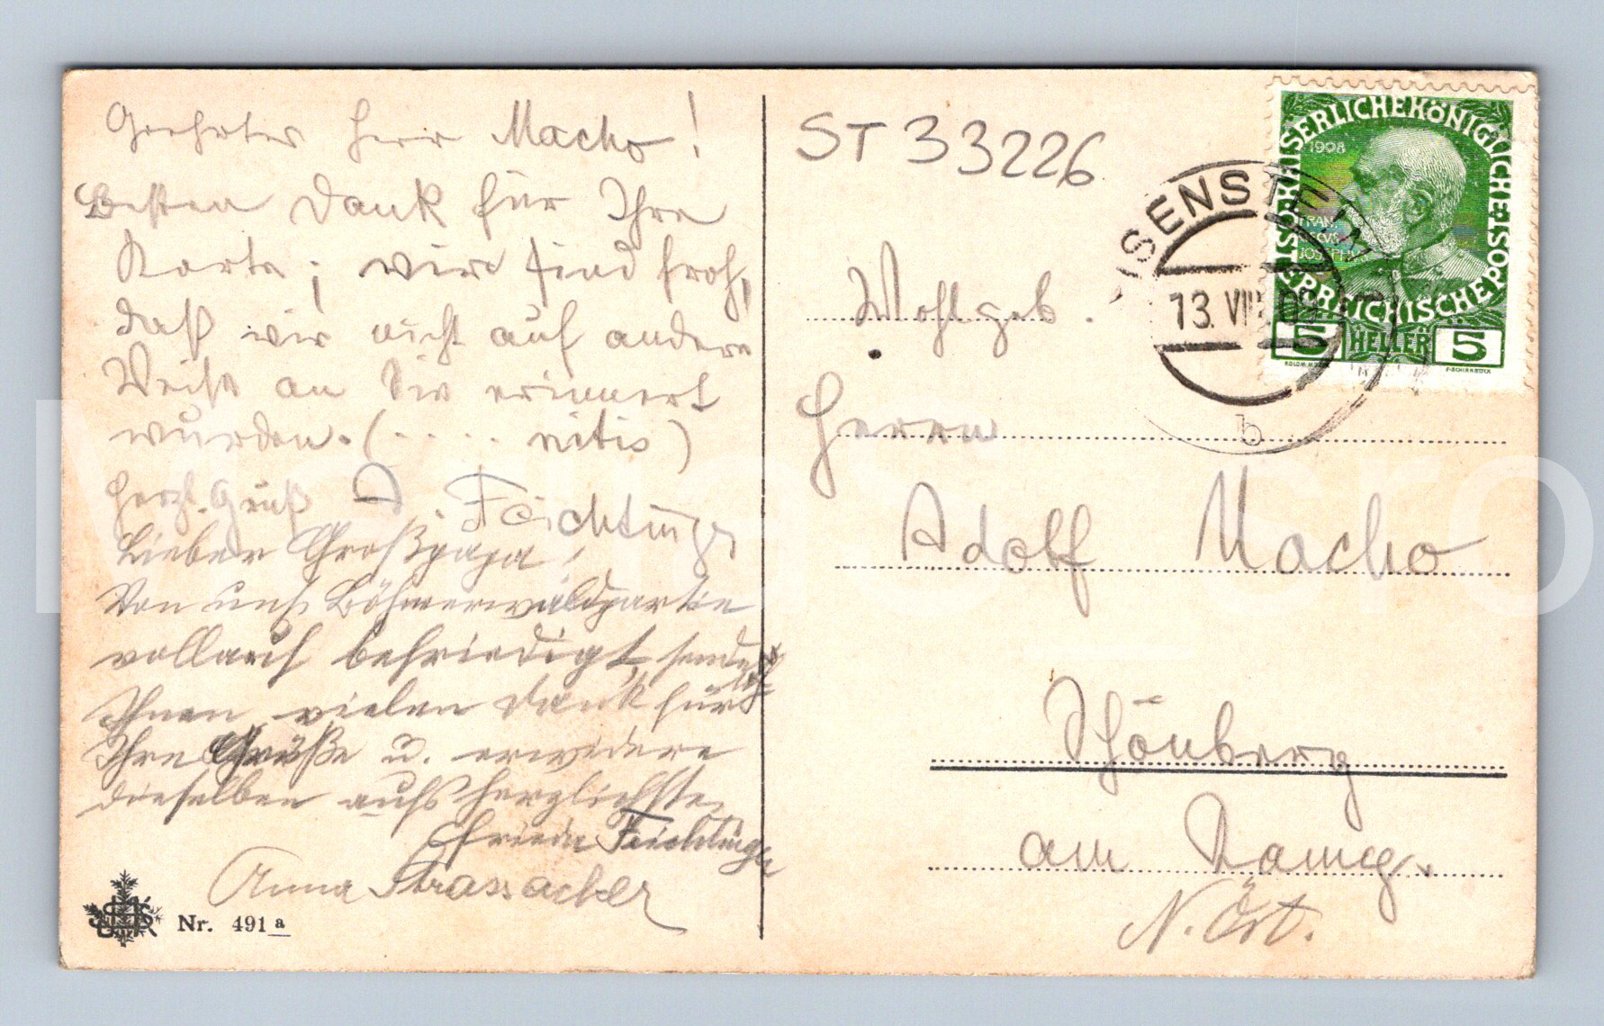 Geehrter Herr Macho!
Besten Dank für Ihre
Karte; wir sind froh,
daß wir nicht auf andere
Weise an Sie erinnert
wurden. (. . . . . ritis)
Herzl. Gruß D. Feichtinger
Lieber Großpapa!
Von uns. Böhmerwaldpartie
vollauf befriedigt, sende
Ihnen vielen Dank für
Ihre Grüße u. erwidere
dieselben aufs herzlichste.
Frieda Feichtinger
Anna Strassacker
Nr. 491 a
ST 33226
KAISERLICHE KÖNIGLICHE ÖSTERREICHISCHE POST
1908
FRANCISCVS JOSEPH I
5 HELLER 5
EISENSTEIN
13. VIII 09
b
Wohlgeb.
Herrn
Adolf Macho
Schönberg
am Kamp.
N. Öst.